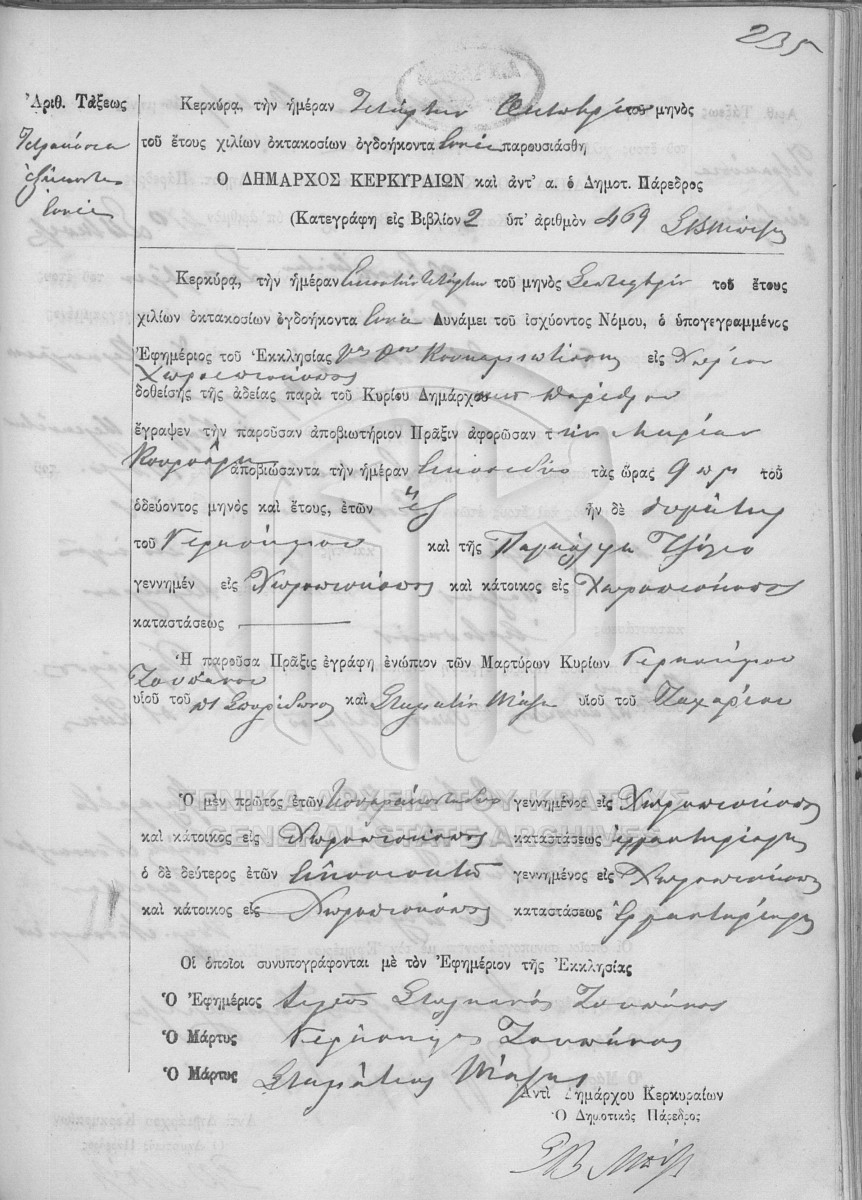 235
Ἀριθ. Τάξεως
Τετρακόσια
ἑξήκοντα
ἐννέα
Κερκύρα, τὴν ἡμέραν Τετάρτην Ὀκτωβρίου μηνὸς
τοῦ ἔτους χιλίων ὀκτακοσίων ὀγδοήκοντα ἐννέα παρουσιάσθη
Ο ΔΗΜΑΡΧΟΣ ΚΕΡΚΥΡΑΙΩΝ καὶ ἀντ' α. ὁ Δημοτ. Πάρεδρος
(Κατεγράφη εἰς Βιβλίον 2 ὑπ' ἀριθμὸν 469
Κερκύρα, τὴν ἡμέραν εἰκοστὴν τετάρτην τοῦ μηνὸς Σεπτεμβρίου τοῦ ἔτους
χιλίων ὀκτακοσίων ὀγδοήκοντα ἐννέα Δυνάμει τοῦ ἰσχύοντος Νόμου, ὁ ὑπογεγραμμένος
Ἐφημέριος τοῦ Ἐκκλησίας εἰς Χωρίον
Χωροεπισκόπους
δοθείσης τῆς ἀδείας παρὰ τοῦ Κυρίου Δημάρχου Παρέδρου
ἔγραψεν τὴν παροῦσαν ἀποβιωτήριον Πρᾶξιν ἀφορῶσαν τ ὴν Μαρίαν
ἀποβιώσαντα τὴν ἡμέραν εἰκοσιδύο τὰς ὥρας 9 π μ τοῦ
ὁδεύοντος μηνὸς καὶ ἔτους, ἐτῶν ἓξ ἦν δὲ θυγάτηρ
τοῦ Γερασίμου καὶ τῆς
γεννημέν εἰς Χωροπισκόπους καὶ κάτοικος εἰς Χωροπισκόπους
καταστάσεως
Ἡ παροῦσα Πρᾶξις ἐγράφη ἐνώπιον τῶν Μαρτύρων Κυρίων Γερασίμου
Τζουπάνου
υἱοῦ τοῦ πτ Σπυρίδωνος καὶ Σταμάτιον Μάζη υἱοῦ τοῦ Ζαχαρίου
ΓΕΝΙΚΑ ΑΡΧΕΙΑ ΤΟΥ ΚΡΑΤΟΥΣ
GENERAL STATE ARCHIVES
Ὁ μὲν πρῶτος ἐτῶν τεσσαρακονταδύο γεννημένος εἰς Χωροπισκόπους
καὶ κάτοικος εἰς Χωροπισκόπους καταστάσεως ἐργαστηριάρης
ὁ δὲ δεύτερος ἐτῶν εἰκοσιοκτὼ γεννημένος εἰς Χωροπισκόπους
καὶ κάτοικος εἰς Χωροπισκόπους καταστάσεως ἐργαστηριάρης
Οἱ ὁποῖοι συνυπογράφονται μὲ τὸν Ἐφημέριον τῆς Ἐκκλησίας
Ὁ Ἐφημέριος Τζουπάνος
Ὁ Μάρτυς Γεράσιμος Τζουπάνος
Ὁ Μάρτυς Σταμάτιος Μάζης
Ἀντὶ Δημάρχου Κερκυραίων
Ὁ Δημοτικὸς Πάρεδρος